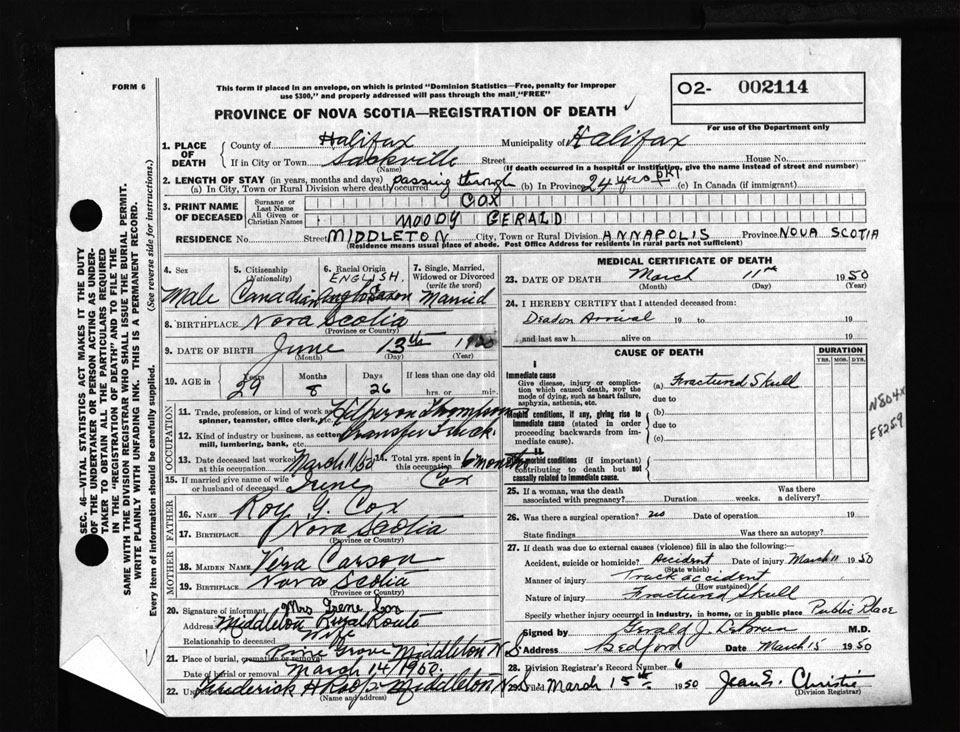 FORM 6
This form if placed in an envelope, on which is printed "Dominion Statistics—Free, penalty for improper
use $300," and properly addressed will pass through the mail "FREE"
PROVINCE OF NOVA SCOTIA—REGISTRATION OF DEATH
O2- 002114
For use of the Department only
1. PLACE OF DEATH
County of Halifax Municipality of Halifax
If in City or Town Sackville Street House No.
(Name) (If death occurred in a hospital or institution, give the name instead of street and number)
2. LENGTH OF STAY (in years, months and days)
(a) In City, Town or Rural Division where death occurred passing through (b) In Province 24 yrs (c) In Canada (if immigrant)
3. PRINT NAME OF DECEASED
Surname or Last Name COX
All Given or Christian Names MOODY GERALD
RESIDENCE No. Street MIDDLETON City, Town or Rural Division ANNAPOLIS Province NOVA SCOTIA
(Residence means usual place of abode. Post Office Address for residents in rural parts not sufficient)
4. Sex
Male
5. Citizenship (Nationality)
Canadian
6. Racial Origin
ENGLISH.
Anglo Saxon
7. Single, Married, Widowed or Divorced (write the word)
Married
8. BIRTHPLACE Nova Scotia
(Province or Country)
9. DATE OF BIRTH June 13th 1920
(Month) (Day) (Year)
10. AGE in Years Months Days If less than one day old
29 8 26 hrs. or min.
OCCUPATION
11. Trade, profession, or kind of work as spinner, teamster, office clerk, etc. Helper on Thompson
12. Kind of industry or business, as cotton mill, lumbering, bank, etc. transfer Truck.
13. Date deceased last worked at this occupation March 11/50
14. Total yrs. spent in this occupation 6 months
15. If married give name of wife or husband of deceased Irene Cox
FATHER
16. Name Roy G. Cox
17. Birthplace Nova Scotia
(Province or Country)
MOTHER
18. MAIDEN NAME Vera Carson
19. BIRTHPLACE Nova Scotia
(Province or Country)
20. Signature of informant Mrs Irene Cox
Address Middleton Rural Route
Relationship to deceased Wife
21. Place of burial, cremation or removal Pine Grove Middleton N.S
Date of burial or removal March 14/1950.
22. Frederick H Roop Middleton N.S
(Name and address)
MEDICAL CERTIFICATE OF DEATH
23. DATE OF DEATH March 11th 1950
(Month) (Day) (Year)
24. I HEREBY CERTIFY that I attended deceased from:
Dead on Arrival 19 to 19
and last saw h alive on 19
CAUSE OF DEATH
DURATION
YRS. MOS. DYS.
I
Immediate cause
Give disease, injury or complication which caused death, not the mode of dying, such as heart failure, asphyxia, asthenia, etc.
(a) Fractured Skull
due to
Morbid conditions, if any, giving rise to immediate cause (stated in order proceeding backwards from immediate cause).
(b)
due to
(c)
II
Other morbid conditions (if important) contributing to death but not causally related to immediate cause.
N804X
E8259
25. If a woman, was the death associated with pregnancy? Duration weeks. Was there a delivery?
26. Was there a surgical operation? no Date of operation 19
State findings Was there an autopsy?
27. If death was due to external causes (violence) fill in also the following:
Accident, suicide or homicide? Accident Date of injury March 11 1950
(State which)
Manner of injury Truck accident
(How sustained)
Nature of injury Fractured Skull
Specify whether injury occurred in industry, in home, or in public place Public Place
Signed by Gerald J. M.D.
Address Bedford Date March 15 1950
28. Division Registrar's Record Number 6
29. Filed March 15th 1950 Jean E. Christie
(Division Registrar)
SEC. 46—VITAL STATISTICS ACT MAKES IT THE DUTY
OF THE UNDERTAKER OR PERSON ACTING AS UNDERTAKER TO OBTAIN ALL THE PARTICULARS REQUIRED
IN THE "REGISTRATION OF DEATH" AND TO FILE THE
SAME WITH THE DIVISION REGISTRAR WHO SHALL ISSUE THE BURIAL PERMIT.
WRITE PLAINLY WITH UNFADING INK. THIS IS A PERMANENT RECORD.
Every item of information should be carefully supplied. (See reverse side for instructions.)